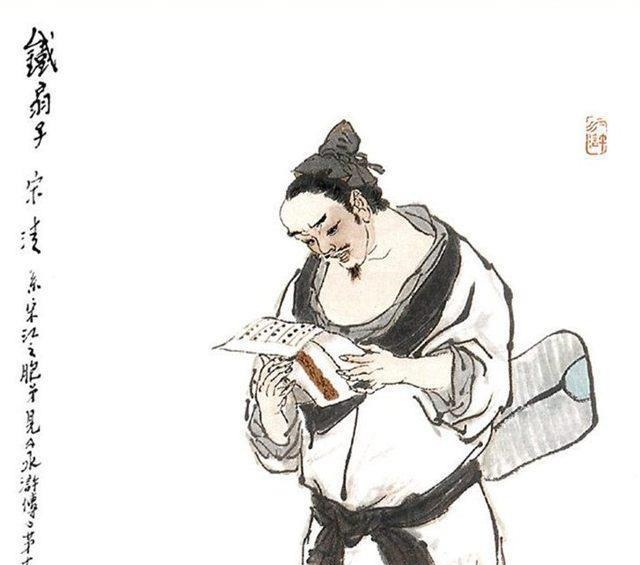 鐵扇子
宋清
系宋江之胞弟見《水滸傳》第